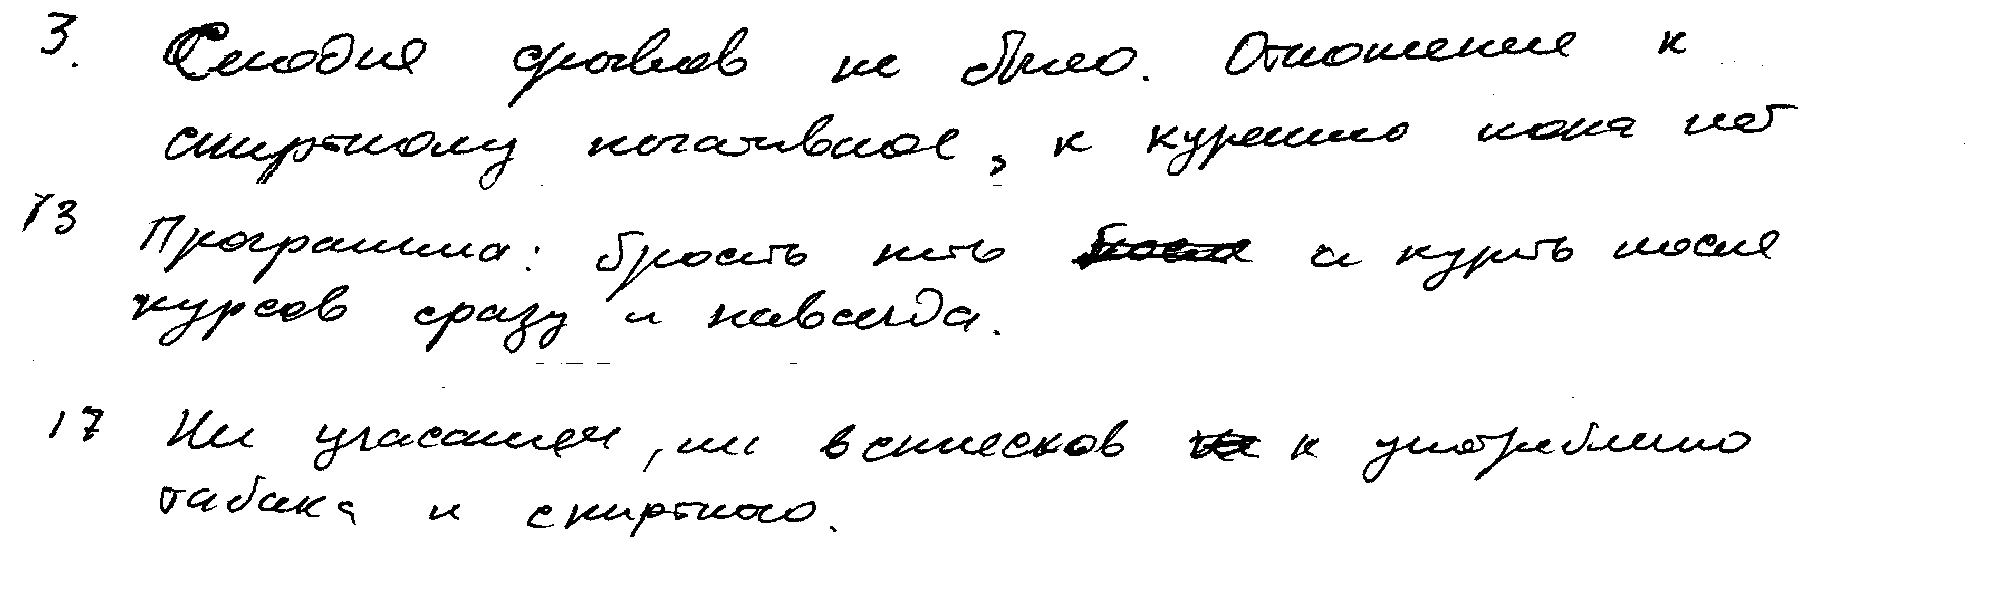 3. Сегодня срывов не было. Отношение к
спиртному негативное, к курению пока нет
13 Программа: бросить пить и курить после
курсов сразу и навсегда.
17 Ни угасаний, ни всплесков к употреблению
табака и спиртного.